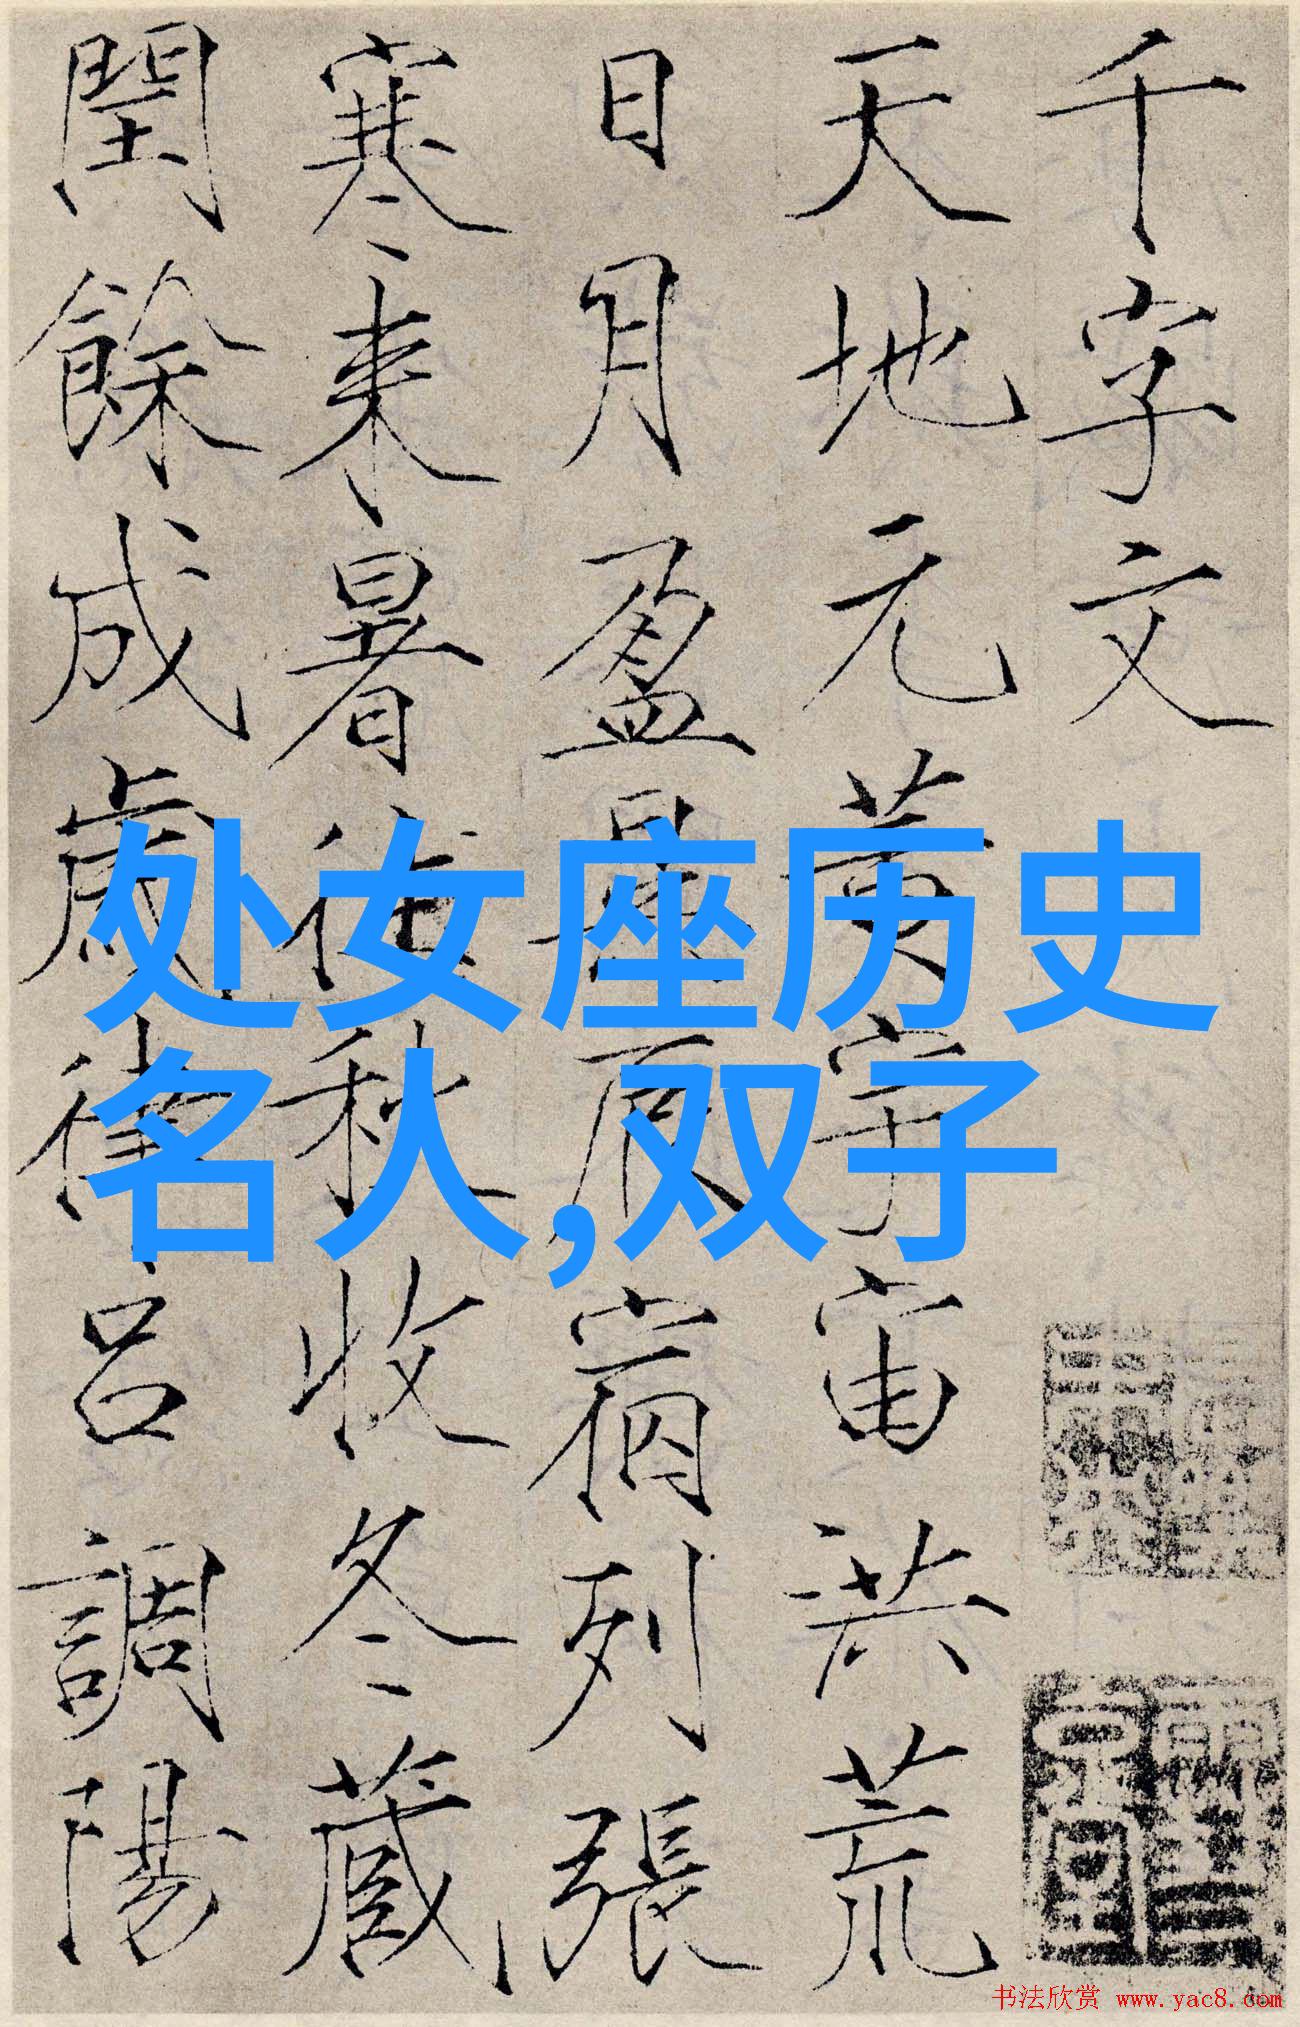 千字文
天地元黄宇宙洪荒
日月盈昃辰宿列張
寒来暑往秋收冬蔵
閏餘成歳律吕調陽
处女座历史
名人,双子
书法欣赏 www.yac8.com